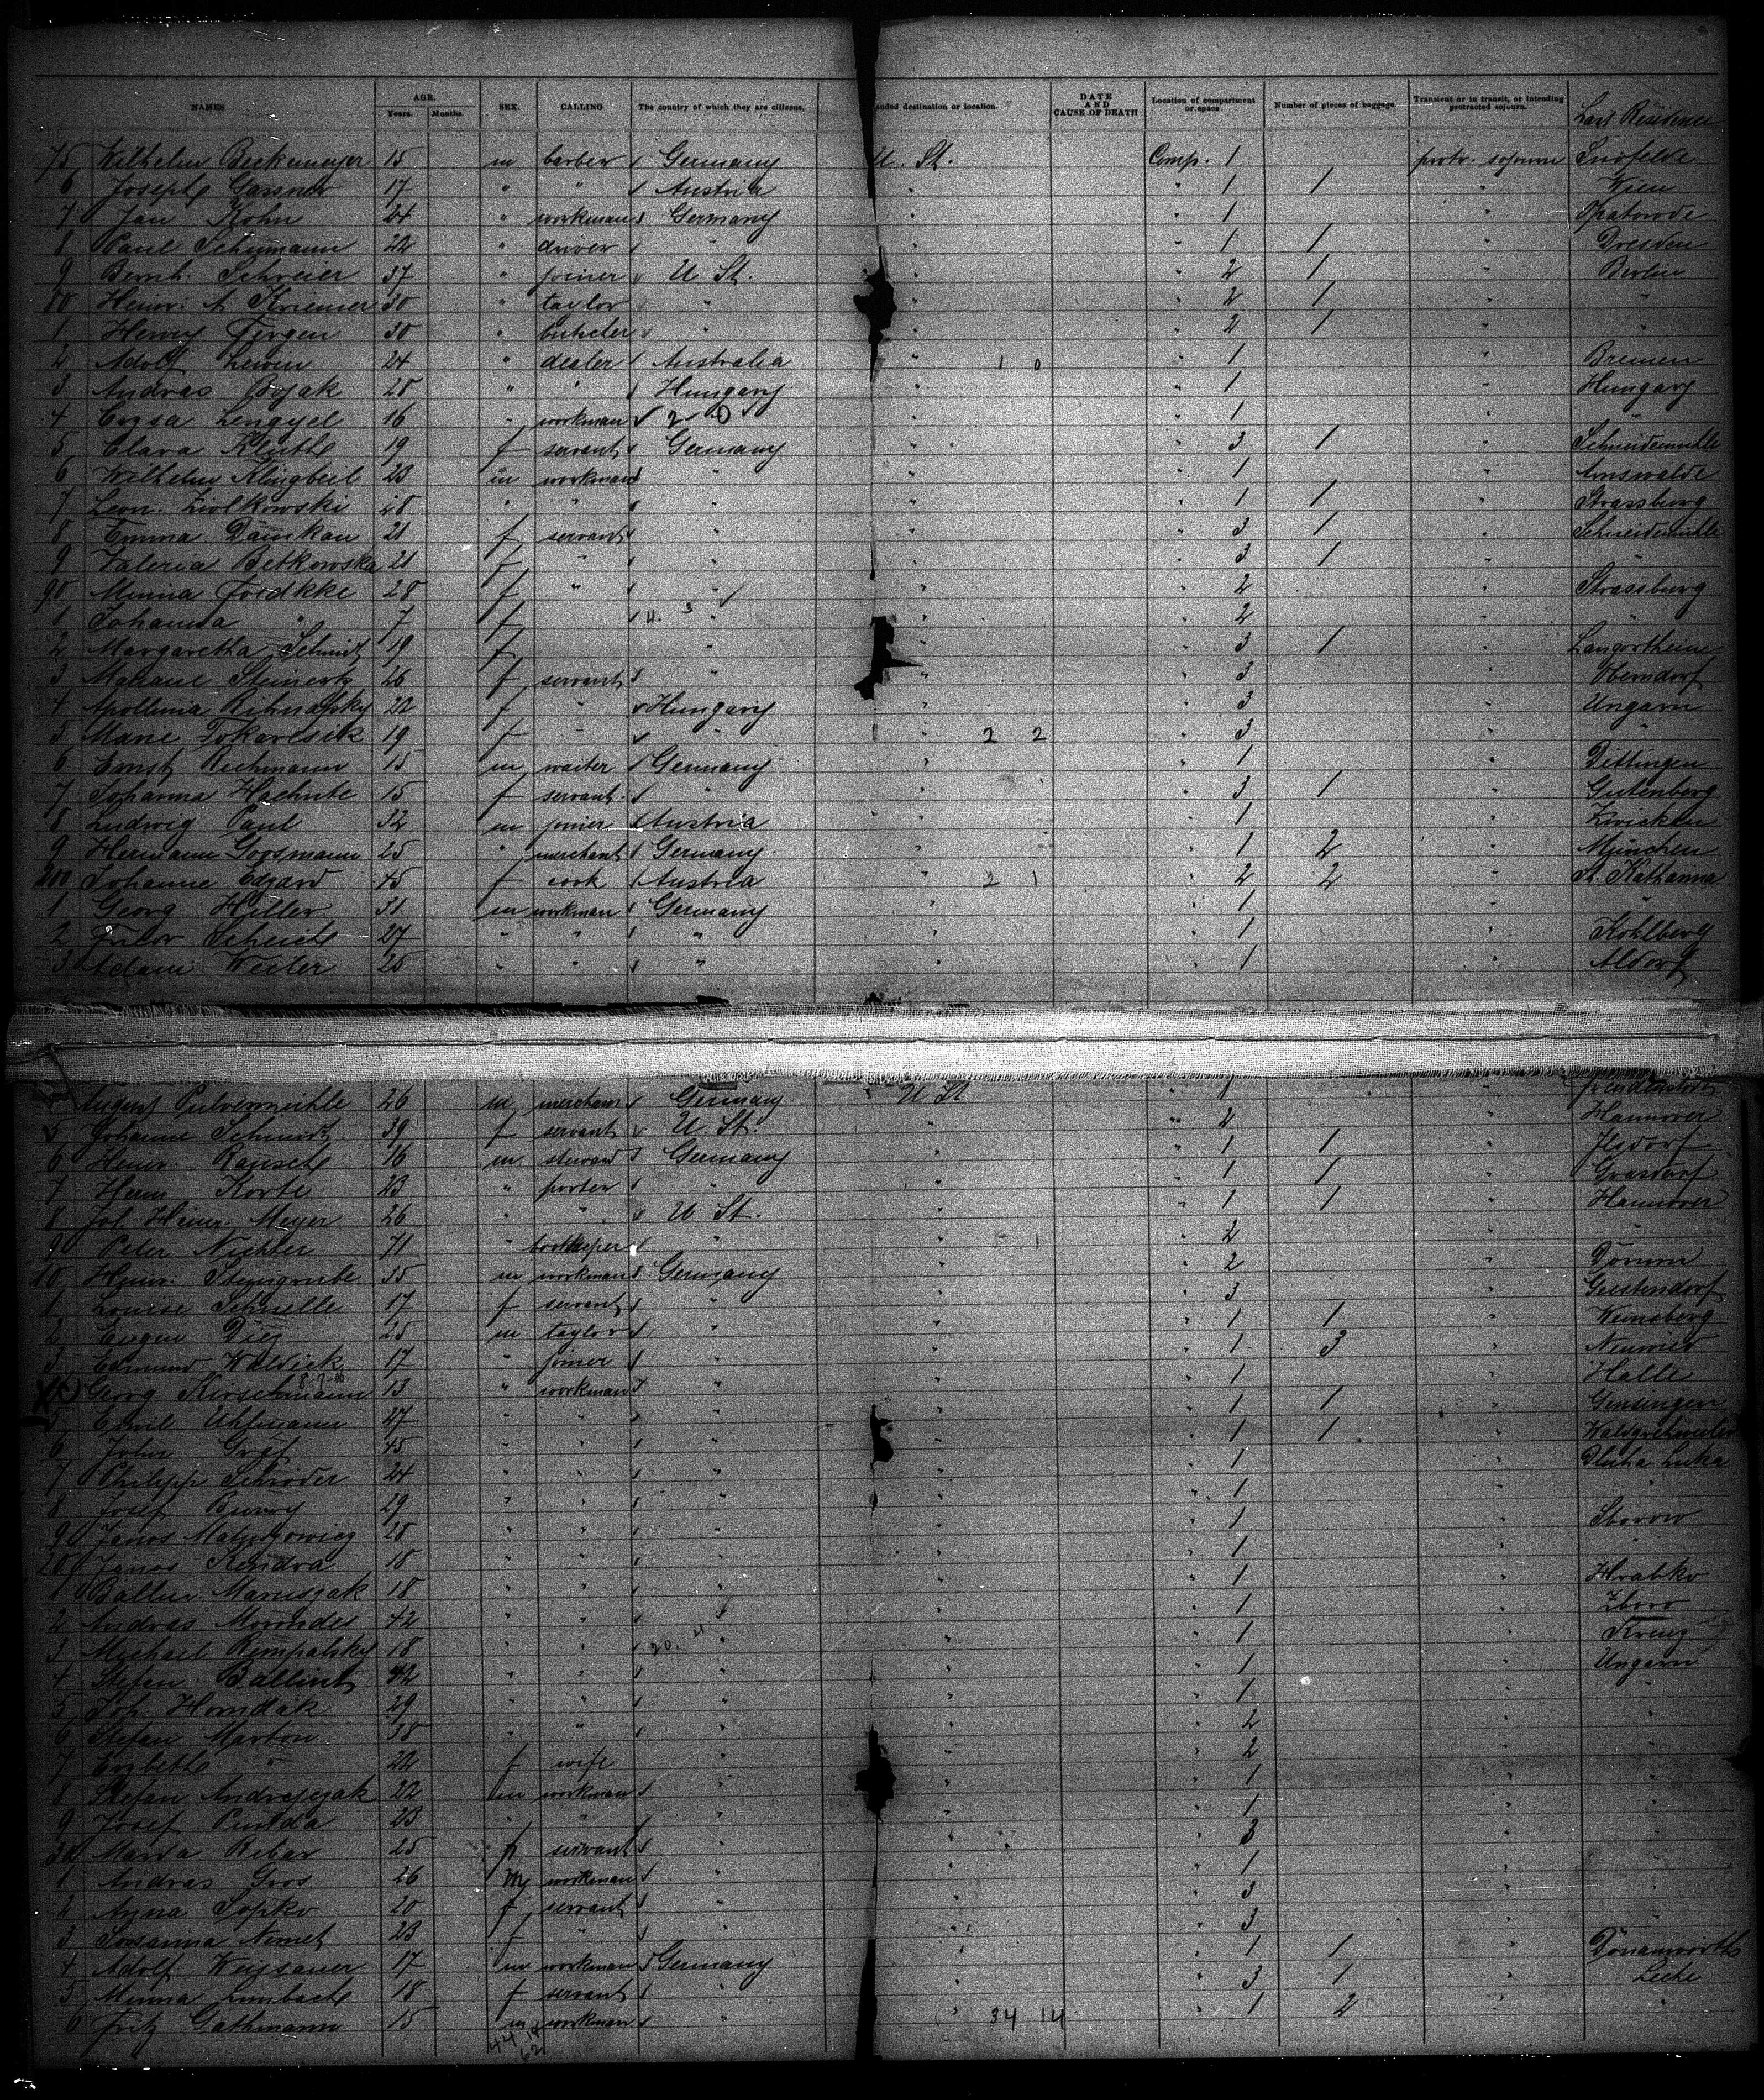 NAMES AGE. Years. Months. SEX. CALLING The country of which they are citizens. ended destination or location. DATE AND CAUSE OF DEATH Location of compartment or space Number of pieces of baggage Transient or in transit, or intending protracted sojourn. Last Residence
75 Wilhelm Beckemeyer 15 m barber Germany U. St. Comp. 1 protr. sojourn
6 Joseph Gassner 17 " " Austria " " 1 1 " Wien
7 Jan Kohn 24 " workman Germany " " 1 "
8 Paul Schumann 22 " driver " " " 1 1 " Dresden
9 Bernh. Schreier 37 " joiner U St. " " 2 1 " Berlin
80 Heinr. A Kriemer 30 " taylor " " " 2 1 " "
1 Henry Tergen 30 " " " " 2 1 " "
2 Adolf Lewin 24 " dealer Australia " 1 0 " 1 " Bremen
3 Andras 28 " " Hungary " " 1 " Hungary
4 Erzsa Lengyel 16 " workman 2 0 " " 1 " "
5 Clara Kluth 19 f servant Germany " " 3 1 " Schneidemuhle
6 Wilhelm Klingbeil 23 m workman " " " 1 " Arnswalde
7 Leon. Ziolkowski 28 " " " " " 1 1 " Strassburg
8 Emma Dämkau 21 f servant " " " 3 1 " Schneidemuhle
9 Valeria Betkowska 21 f " " " " 3 1 " "
90 Minna 28 f " " " " 2 " Strassburg
1 Johanna " 7 f 4. 3 " " " 2 " "
2 Margaretha Schmidt 19 f " " " 3 1 "
3 Steinerts 26 f servant " " " 3 "
4 Apollinia 22 f " Hungary " " 3 " Ungarn
5 Marie Tokarcsik 19 f " " " 2 2 " 3 " "
6 Ernst Reichmann 15 m waiter Germany " " 1 " Dittingen
7 Johanna Haehnte 15 f servant " " " 3 1 " Gutenberg
8 Ludwig Paul 32 m joiner Austria " " 1 "
9 Hermann Goosmann 25 " merchant Germany " " 1 2 " München
200 Johanne Edzard 45 f cook Austria " 2 1 " 2 2 " St. Katharina
1 Georg Hiller 31 m workman Germany " " 1 " "
2 27 " " " " " 1 " Kohlberg
3 Adam Weiler 25 " " " " " 1 " Aldorf
August Pulvermühle 26 m merchant Germany U St " 1 "
5 Johanne Schmidt 39 f servant U. St. " " 2 " Hannover
6 Heinr. Rausch 16 m steward Germany " " 1 1 " Ilsdorf
7 Herm Korte 23 " porter " " " 1 1 " Grasdorf
8 Joh. Heinr. Meyer 26 " " U St. " " 1 1 " Hannover
9 Peter Nichter 71 " bookkeeper " " 1 " 2 " "
10 Heinr. Steingrube 35 m workman Germany " " 2 " Dorum
1 Louise Schnelle 17 f servant " " " 3 " Geestendorf
2 Eugen Diez 25 m taylor " " " 1 1 " Weinsberg
3 Edmund Waldick 17 " joiner " " " 1 3 " Neuwied
Georg Kirschmann 8-7-00 13 " workman " " " 1 " Halle
5 Emil Uhlmann 27 " " " " " 1 1 " Gensingen
6 John Gräf 45 " " " " " 1 1 "
7 Philipp Schröder 24 " " " " " 1 "
8 Josef 29 " " " " " 1 " "
9 Janos 28 " " " " " 1 "
20 Janos Kendra 18 " " " " " 1 " "
1 Marusgak 18 " " " " " 1 " Hrabko
2 Andras 42 " " " " " 1 " Zboro
3 Michael Rempalsky 18 " " 20. 4 " " " 1 " Kreuz
4 Stefan Ballint 42 " " " " " 1 " Ungarn
5 Joh. Homdak 29 " " " " " 1 " "
6 Stefan Marton 38 " " " " " 2 " "
7 Erzbeth " 22 f wife " " " 2 " "
8 Stefan 22 m workman " " " 1 " "
9 Josef 23 " " " " " 1 " "
30 Maria Rebar 25 f servant " " " 3 " "
1 Andras Gros 26 m workman " " " 1 " "
2 Anna Sopko 20 f servant " " " 3 " "
3 Susanna Nemet 23 f " " " " 3 " "
4 Adolf Weissauer 17 m workman Germany " " 1 1 " Donauwörth
5 Minna Limbach 18 f servant " " " 3 1 " Lehe
6 Fritz Gathmann 15 m workman " " 34 14 " 1 2 " "
44 18
62